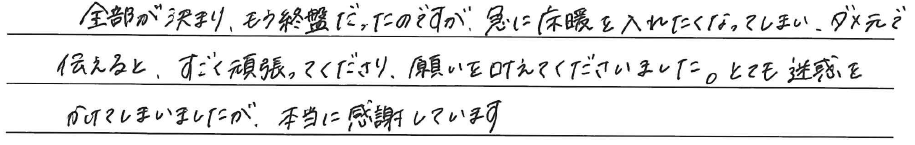 全部が決まり、もう終盤だったのですが、急に床暖を入れたくなってしまい、ダメ元で
伝えると、すごく頑張ってくださり、願いを叶えてくださいました。とても迷惑を
かけてしまいましたが、本当に感謝しています